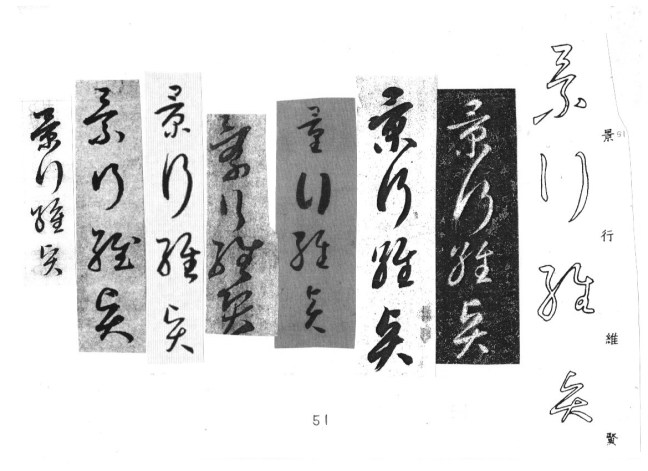 91
景行維賢
景行維賢
景行維賢
景行維賢
景行維賢
景行維賢
景行維賢
景行維賢
景行維賢
51